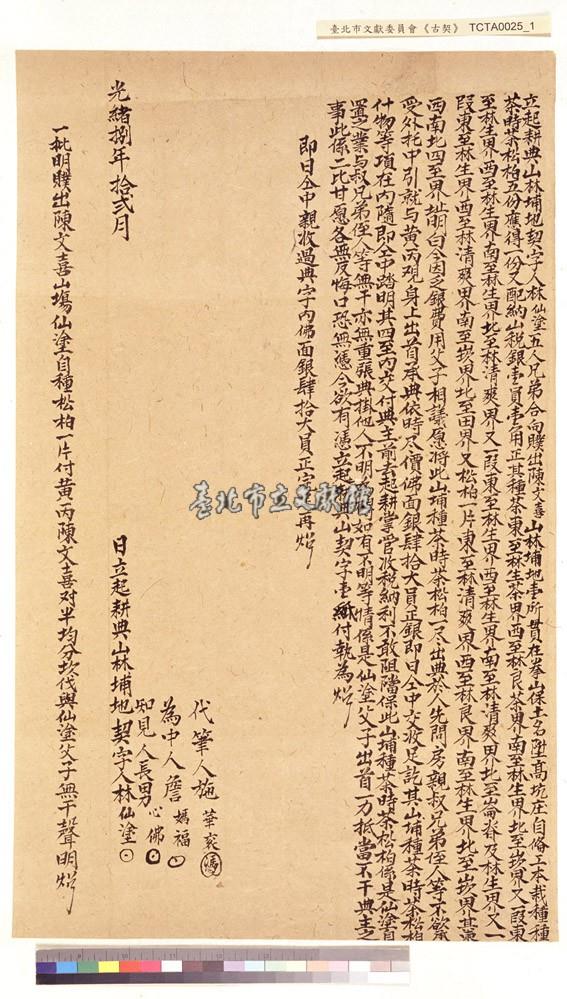 臺北市文獻委員會《古契》 TCTA0025_1
立起耕典山林埔地契字人林仙塗五人兄弟合向贌出陳文喜山林埔地壹所貫在拳山保土名陂高坑庄自俻工本栽種種
茶時茶松柏五份應得一份又配納山税銀壹員壹角正其種茶東至林生茶界西至林良茶界南至林生界北至崁界又一叚東
至林生界西至林生界南至林生界北至林清爽界又一叚東至林生界西至林生界南至林清爽界北至崙脊及林生界又一
叚東至林生界西至林清爽界南至崁界北至田界又松柏一片東至林清爽界西至林良界南至林生界北至崁界其東
西南北四至界址明白今因乏銀費用父子相議愿將此山埔種茶時茶松柏一尽出典於人先問房親叔兄弟侄人等不欲
受外托中引就与黃丙观身上出首承典依時尽價佛面銀肆拾大員正銀即日仝中交收足訖其山埔種茶時茶松柏
什物等項在內隨即仝中踏明其四至內交付典主前去起耕掌管收税納利不敢阻擋保此山埔種茶時茶松柏係是仙塗自
置之業与叔兄弟侄人等無干亦無重張典掛他人不明如有不明等情係是仙塗父子出首一力抵當不干典主之
事此係二比甘愿各無反悔口恐無憑今欲有憑立起耕典山契字壹紙付執為炤
即日仝中親收過典字內佛面銀肆拾大員正完足再炤
代筆人施華袞
為中人詹媽福
知見人長男心佛
光緒捌年拾弍月 日立起耕典山林埔地契字人林仙塗
一批明贌出陳文喜山塲仙塗自種松柏一片付黃丙陳文喜对半均分砍伐與仙塗父子無干聲明炤
臺北市立文獻館